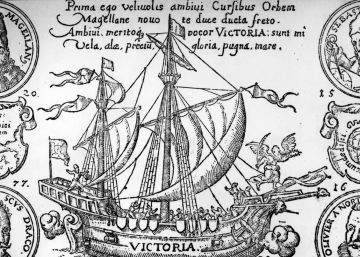 Prima ego velivolis ambivi Cursibus Orbem
Magellane novo te duce ducta freto.
Ambivi, meritoq₃ vocor VICTORIA: sunt mî
Vela, alæ, preciũ, gloria, pugna, mare.
MAGELLANV
20.
15
77.
16
SCVS DRACO.
OLIVIER A NOR
VICTORIA.